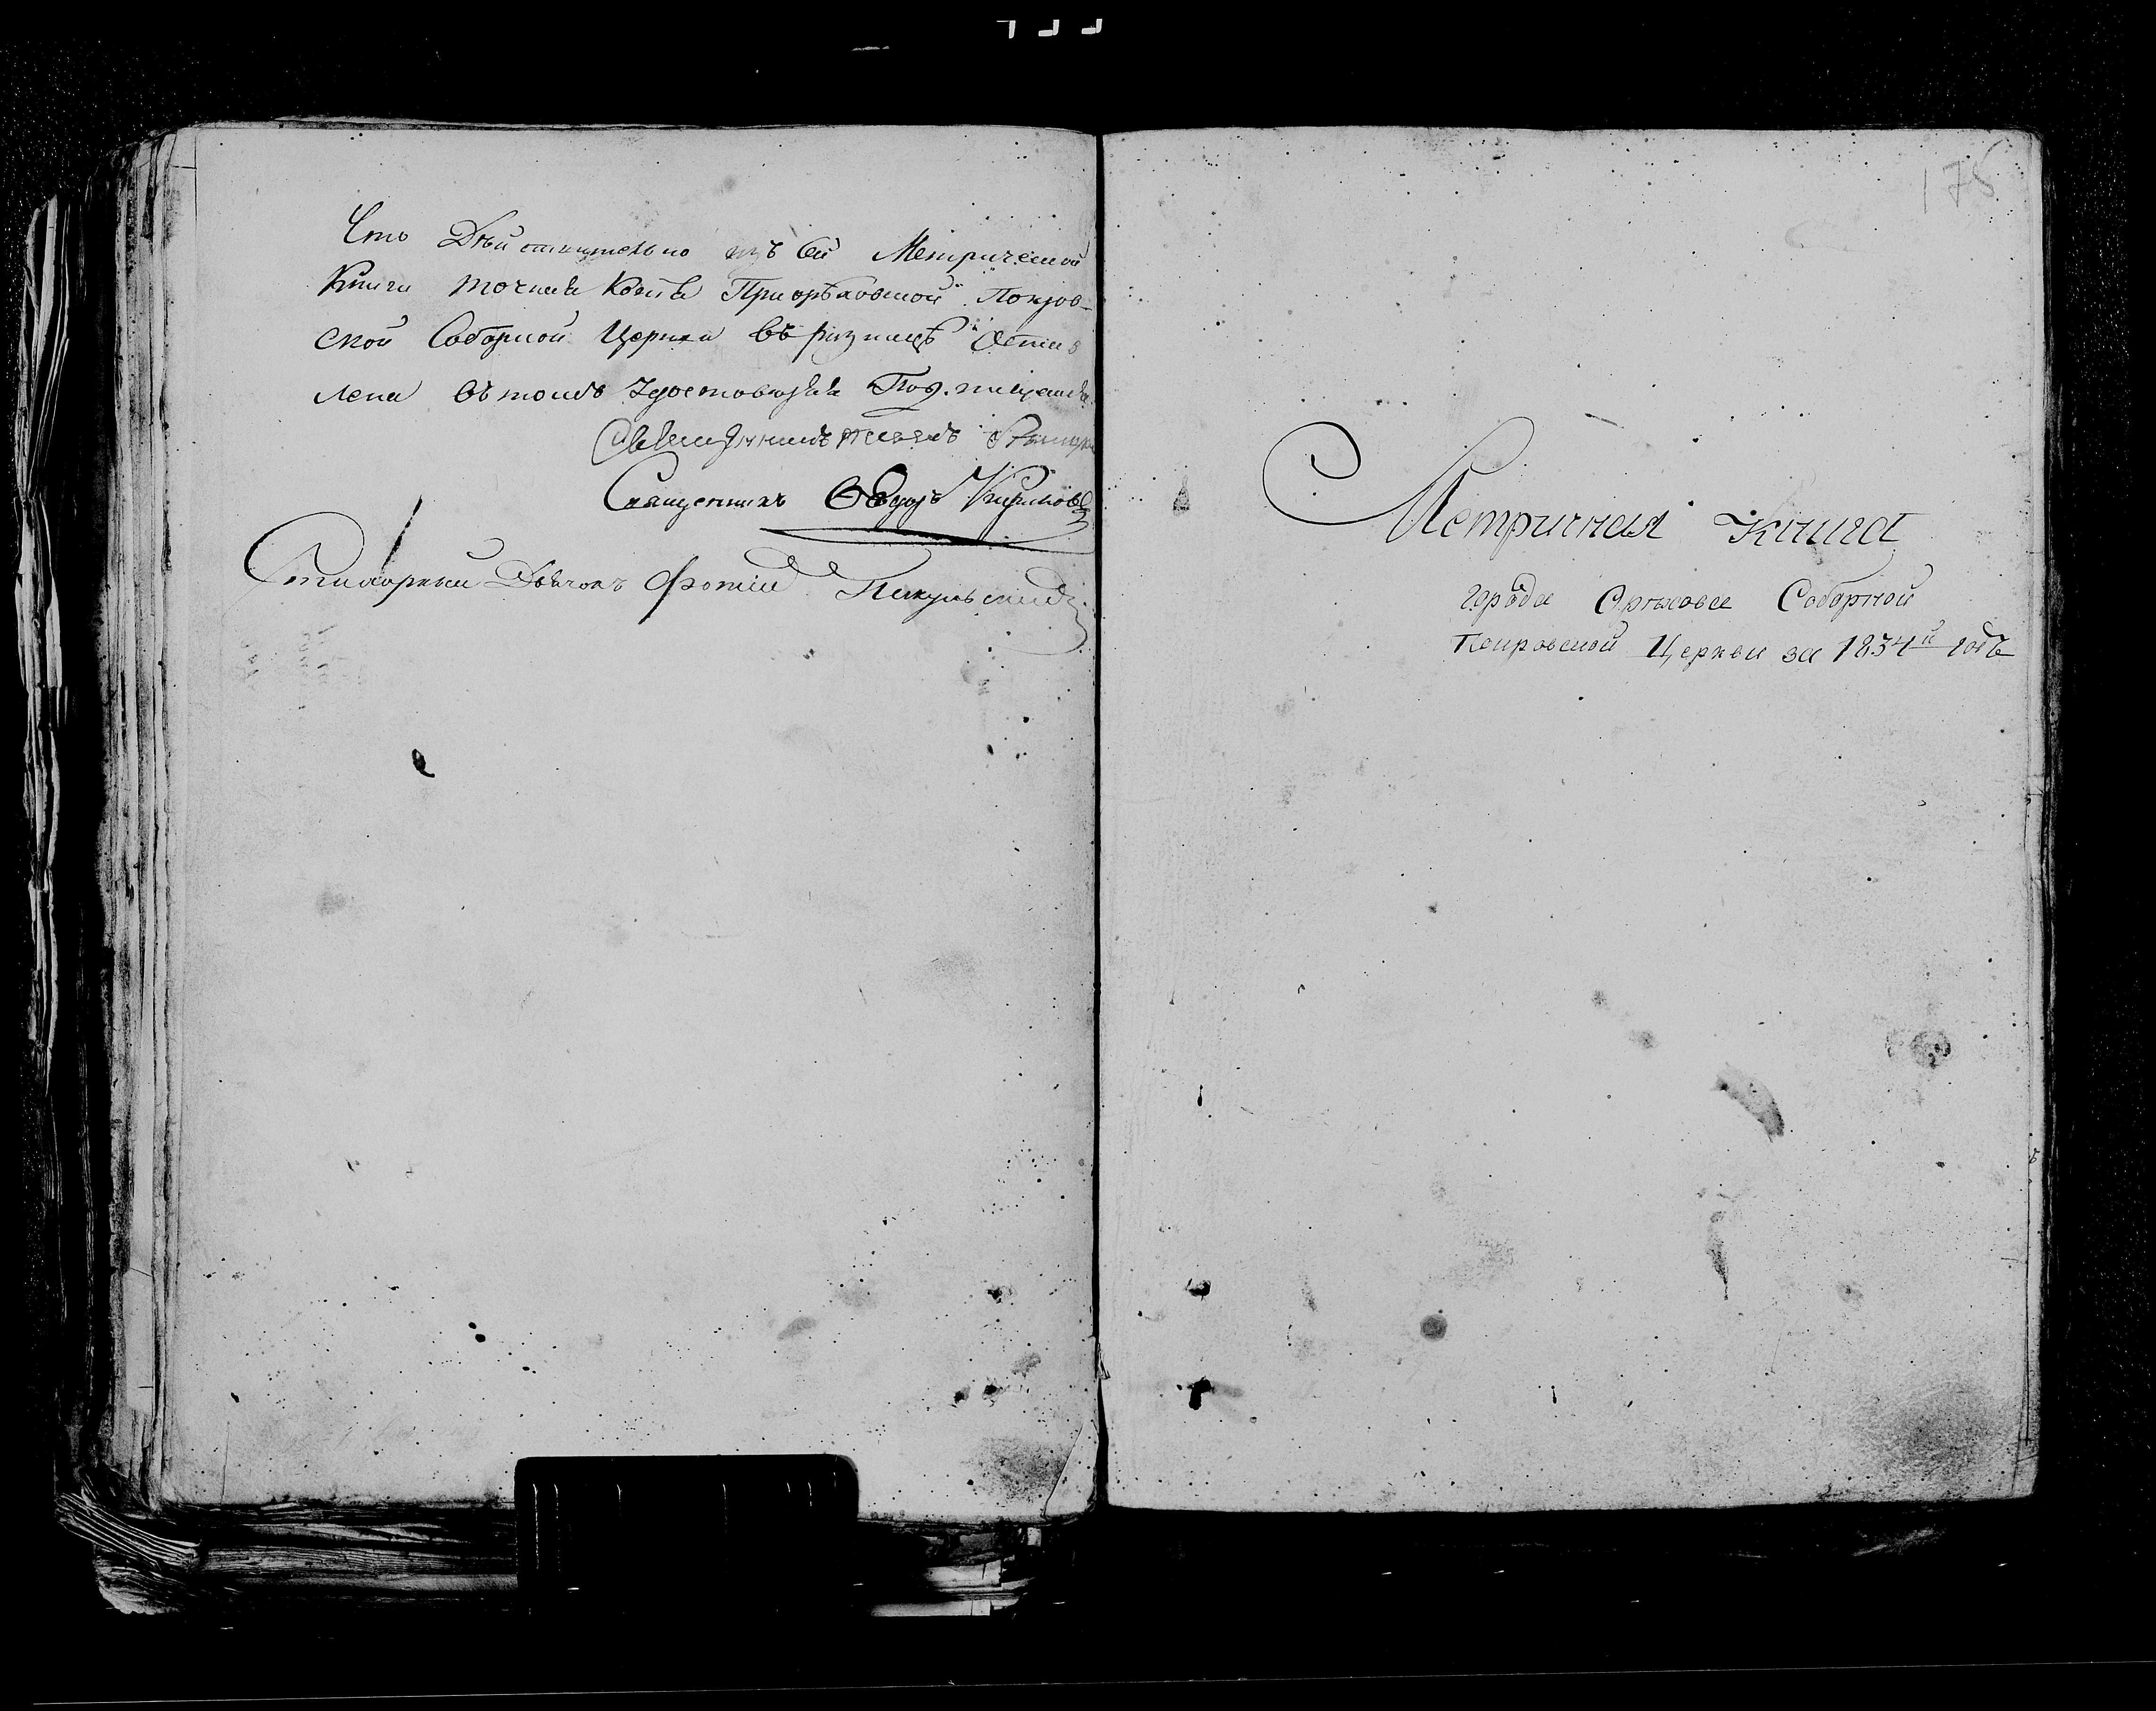 Что Дѣйствительно изъ сей Метрической
Книги точная Копія При орѣховской Покров-
ской Соборной Церкви въ ризницѣ Остав
лена въ томъ Удостовѣряя Подписуемся
Священникъ
Священникъ Ѳеодоръ Кириловъ
Стихарный Дьячокъ Фотій Пикульскій
175
Метричная Книга
города Орѣхова Соборной
Покровской Церкви за 1834й годъ